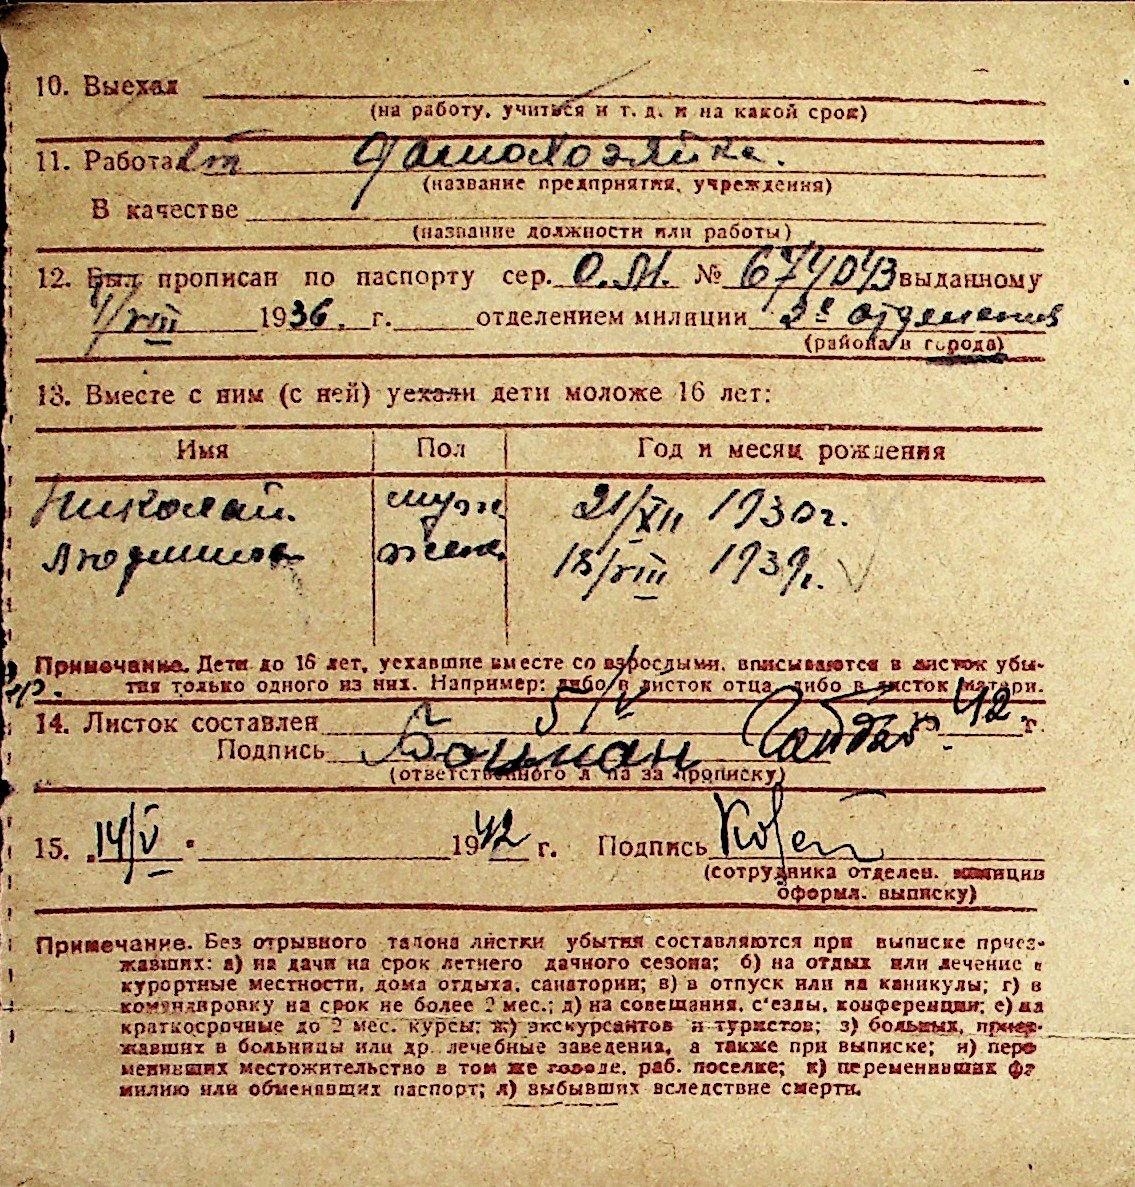 10. Выехал
(на работу, учиться и т. д. и на какой срок)
11. Работает домохозяйка.
(название предприятия, учреждения)
В качестве
(название должности или работы)
12. Был прописан по паспорту сер. О.М. № 674043 выданному
1/VIII 1936. г. отделением милиции 2е отделения
(района и города)
13. Вместе с ним (с ней) уехали дети моложе 16 лет:
Имя Пол Год и месяц рождения
Николай. муж 21/XII 1930г.
Людмила жен. 18/VIII 1939г.
Примечание. Дети до 16 лет, уехавшие вместе со взрослыми, вписываются в листок убы-
тия только одного из них. Например: либо в листок отца, либо в листок матери.
14. Листок составлен 5/V 42 г.
Подпись
(ответственного лица за прописку)
15. „14/V" 1942 г. Подпись
(сотрудника отделен. милиции
оформл. выписку)
Примечание. Без отрывного талона листки убытия составляются при выписке приез-
жавших: а) на дачи на срок летнего дачного сезона; б) на отдых или лечение в
курортные местности, дома отдыха, санатории; в) в отпуск или на каникулы; г) в
командировку на срок не более 2 мес.; д) на совещания, с'езды, конференции; е) на
краткосрочные до 2 мес. курсы; ж) экскурсантов и туристов; з) больных, приез-
жавших в больницы или др. лечебные заведения, а также при выписке; и) пере
менивших местожительство в том же городе, раб. поселке; к) переменивших фа
милию или обменявших паспорт; л) выбывших вследствие смерти.